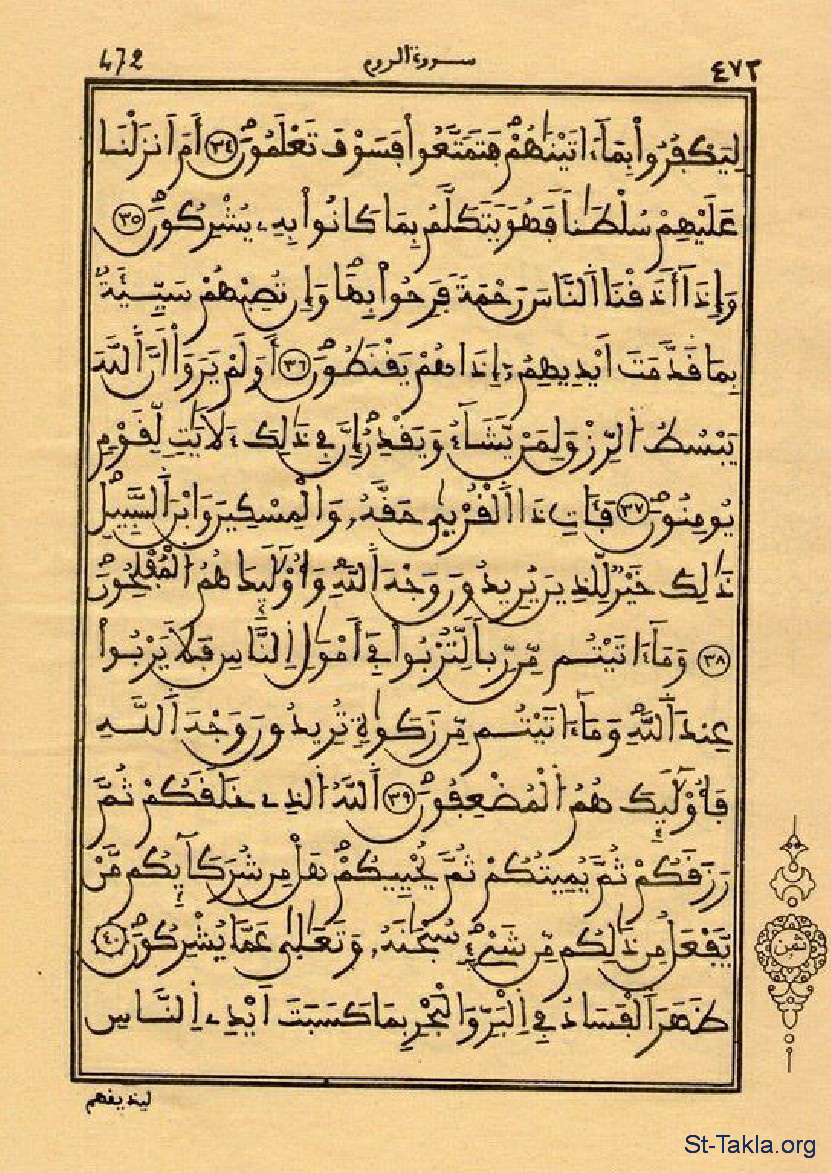 472 سورة الروم ٤٧٢
لِيَكْفُرُواْ بِمَآ ءَاتَيْنَٰهُمْ فَتَمَتَّعُواْ فَسَوْفَ تَعْلَمُونَ ٣٤ أَمَ اَنزَلْنَا
عَلَيْهِمْ سُلْطَٰناً فَهُوَ يَتَكَلَّمُ بِمَا كَانُواْ بِهِۦ يُشْرِكُونَ ٣٥
وَإِذَآ أَذَقْنَا اَ۬لنَّاسَ رَحْمَةً فَرِحُواْ بِهَا وَإِن تُصِبْهُمْ سَيِّئَةُۢ
بِمَا قَدَّمَتَ اَيْدِيهِمُۥٓ إِذَا هُمْ يَقْنَطُونَ ٣٦ أَوَلَمْ يَرَوَاْ اَنَّ اَ۬للَّهَ
يَبْسُطُ اُ۬لرِّزْقَ لِمَنْ يَّشَآءُ وَيَقْدِرُ إِنَّ فِے ذَٰلِكَ ءَلَأيَٰتٖ لِّقَوْمٖ
يُومِنُونَ ٣٧ فَـَٔاتِ ذَا اَ۬لْقُرْبَىٰ حَقَّهُۥ وَالْمِسْكِينَ وَابْنَ اَ۬لسَّبِيلِ
ذَٰلِكَ خَيْرٞ لِّلذِينَ يُرِيدُونَ وَجْهَ اَ۬للَّهِ وَأُوْلَٰٓئِكَ هُمُ اُ۬لْمُفْلِحُونَ
٣٨ وَمَآ ءَاتَيْتُم مِّن رِّباٗ لِّتُرْبُواْ فِےٓ أَمْوَٰلِ اِ۬لنَّاسِ فَلَا يَرْبُواْ
عِندَ اَ۬للَّهِ وَمَآ ءَاتَيْتُم مِّن زَكَوٰةٖ تُرِيدُونَ وَجْهَ اَ۬للَّهِ
فَأُوْلَٰٓئِكَ هُمُ اُ۬لْمُضْعِفُونَ ٣٩ اَ۬للَّهُ اُ۬لذِے خَلَقَكُمْ ثُمَّ
رَزَقَكُمْ ثُمَّ يُمِيتُكُمْ ثُمَّ يُحْيِيكُمْ هَلْ مِن شُرَكَآئِكُم مَّنْ
يَّفْعَلُ مِن ذَٰلِكُم مِّن شَےْءٖ سُبْحَٰنَهُۥ وَتَعَٰلَىٰ عَمَّا يُشْرِكُونَ ٤٠
ثمن
ظَهَرَ اَ۬لْفَسَادُ فِے اِ۬لْبَرِّ وَالْبَحْرِ بِمَا كَسَبَتَ اَيْدِے اِ۬لنَّاسِ
ليذيقهم
St-Takla.org